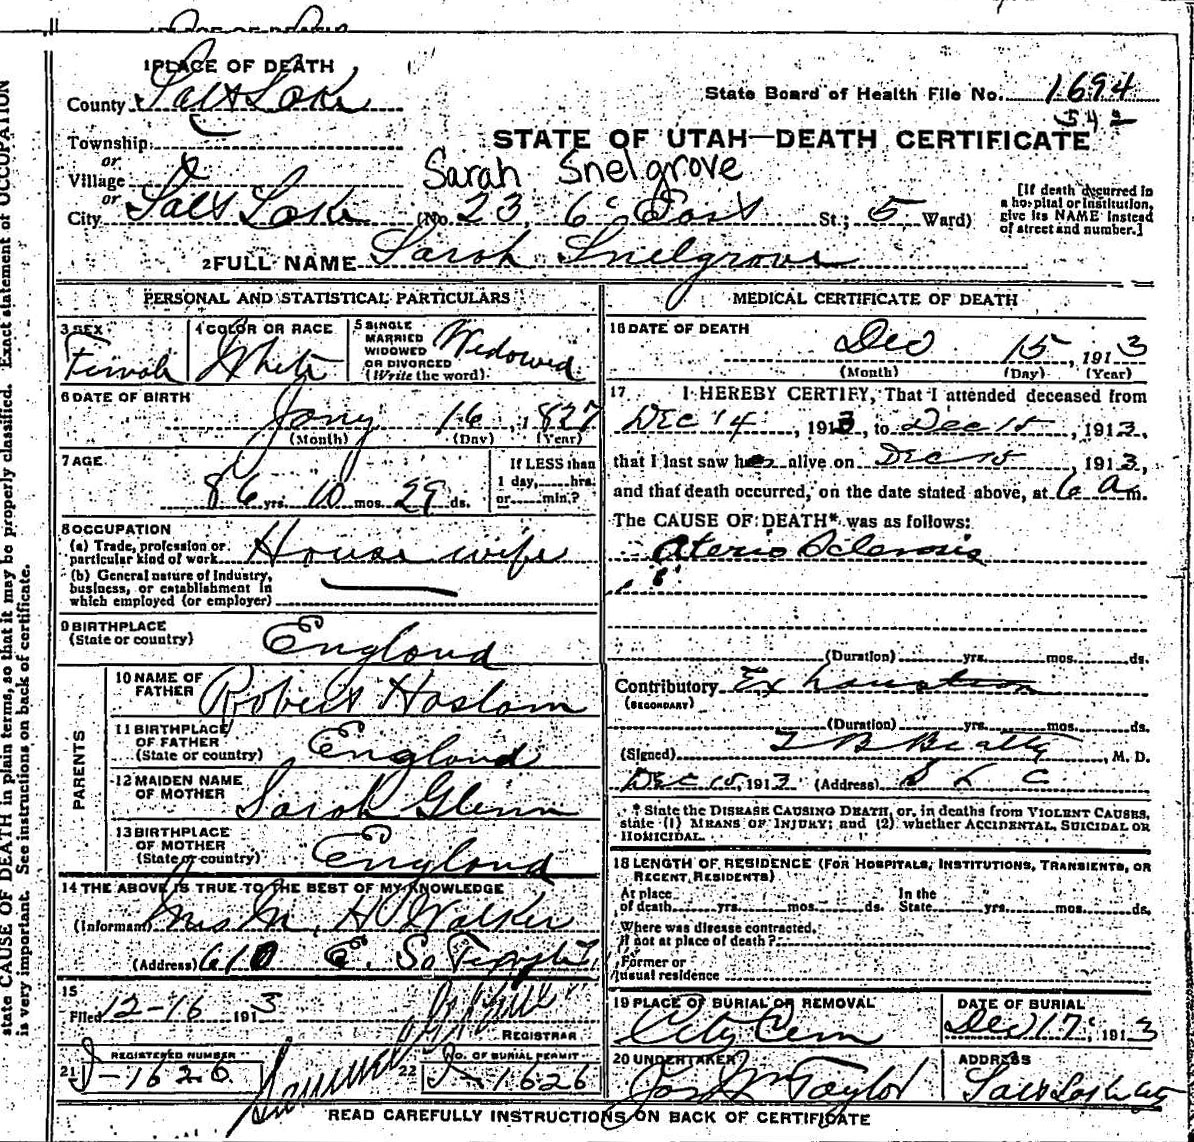 1 PLACE OF DEATH
County Salt Lake
State Board of Health File No. 1694
Township
STATE OF UTAH—DEATH CERTIFICATE
or
Village
Sarah Snelgrove
or
City Salt Lake (No. 23, 6 East St.; 5 Ward)
[If death occurred in a hospital or institution, give its NAME instead of street and number.]
2 FULL NAME Sarah Snelgrove
PERSONAL AND STATISTICAL PARTICULARS
3 SEX
Female
4 COLOR OR RACE
White
5 SINGLE
MARRIED
WIDOWED
OR DIVORCED
(Write the word)
Widowed
6 DATE OF BIRTH
Jany 16, 1827
(Month) (Day) (Year)
7 AGE
86 yrs. 10 mos. 29 ds.
If LESS than
1 day, hrs.
or min.?
8 OCCUPATION
(a) Trade, profession or
particular kind of work House wife
(b) General nature of Industry,
business, or establishment in
which employed (or employer)
9 BIRTHPLACE
(State or country)
England
PARENTS
10 NAME OF
FATHER Robert Haslam
11 BIRTHPLACE
OF FATHER
(State or country) England
12 MAIDEN NAME
OF MOTHER Sarah Glenn
13 BIRTHPLACE
OF MOTHER
(State or country) England
14 THE ABOVE IS TRUE TO THE BEST OF MY KNOWLEDGE
(Informant) Mrs M. H Walker
(Address) 610 E. So Temple
15
Filed 12-16 1913
REGISTRAR
REGISTERED NUMBER
21 1626
NO. OF BURIAL PERMIT
22 1626
MEDICAL CERTIFICATE OF DEATH
16 DATE OF DEATH
Dec 15, 1913
(Month) (Day) (Year)
17 I HEREBY CERTIFY, That I attended deceased from
Dec 14, 1913, to Dec 15, 1913,
that I last saw her alive on Dec 15, 1913,
and that death occurred, on the date stated above, at 6 a m.
The CAUSE OF DEATH* was as follows:
Aterio Sclerosis
(Duration) yrs. mos. ds.
Contributory Exhaustion
(SECONDARY)
(Duration) yrs. mos. ds.
(Signed) T B Beatty, M. D.
Dec 15, 1913 (Address) S L C.
* State the DISEASE CAUSING DEATH, or, in deaths from VIOLENT CAUSES,
state (1) MEANS OF INJURY; and (2) whether ACCIDENTAL, SUICIDAL OR
HOMICIDAL.
18 LENGTH OF RESIDENCE (FOR HOSPITALS, INSTITUTIONS, TRANSIENTS, OR
RECENT RESIDENTS)
At place
of death yrs. mos. ds.
In the
State yrs. mos. ds.
Where was disease contracted,
if not at place of death?
Former or
usual residence
19 PLACE OF BURIAL OR REMOVAL
City Cem
DATE OF BURIAL
Dec 17, 1913
20 UNDERTAKER
Jos Wm Taylor
ADDRESS
Salt Lake City
READ CAREFULLY INSTRUCTIONS ON BACK OF CERTIFICATE
state CAUSE OF DEATH in plain terms, so that it may be properly classified. Exact statement of OCCUPATION
is very important. See instructions on back of certificate.